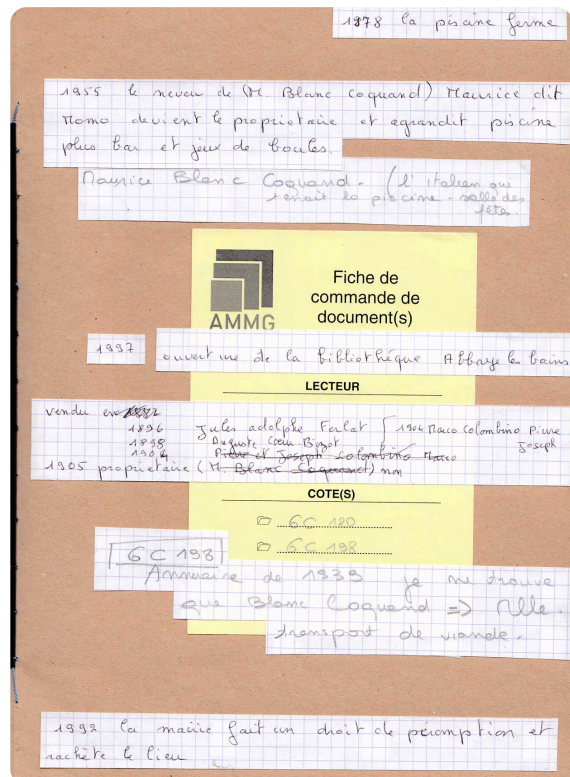 1978 la piscine ferme
1955 le neveu de (M. Blanc Coquand) Maurice dit
Momo devient le propriétaire et agrandit piscine
plus bar et jeux de boules.
Maurice Blanc Coquand. (l'italien que
tenait la piscine - salle des
fêtes
AMMG
Fiche de
commande de
document(s)
1997
ouverture de la bibliothèque Abbaye les bains
LECTEUR
vendu en
1896 Jules adolphe Ferlat [ 1904 Marco Colombino Pierre
Joseph
1898 Auguste Coeur Bozot
1904 Pierre et Joseph Colombino Marco
1905 propriétaire (M. Blanc Coquand) non
COTE(S)
6C 180
6C 198
6C 198
Annuaire de 1939 je ne trouve
que Blanc Coquand => Mlle.
transport de viande.
1992 la mairie fait un droit de péremption et
rachète le lieu